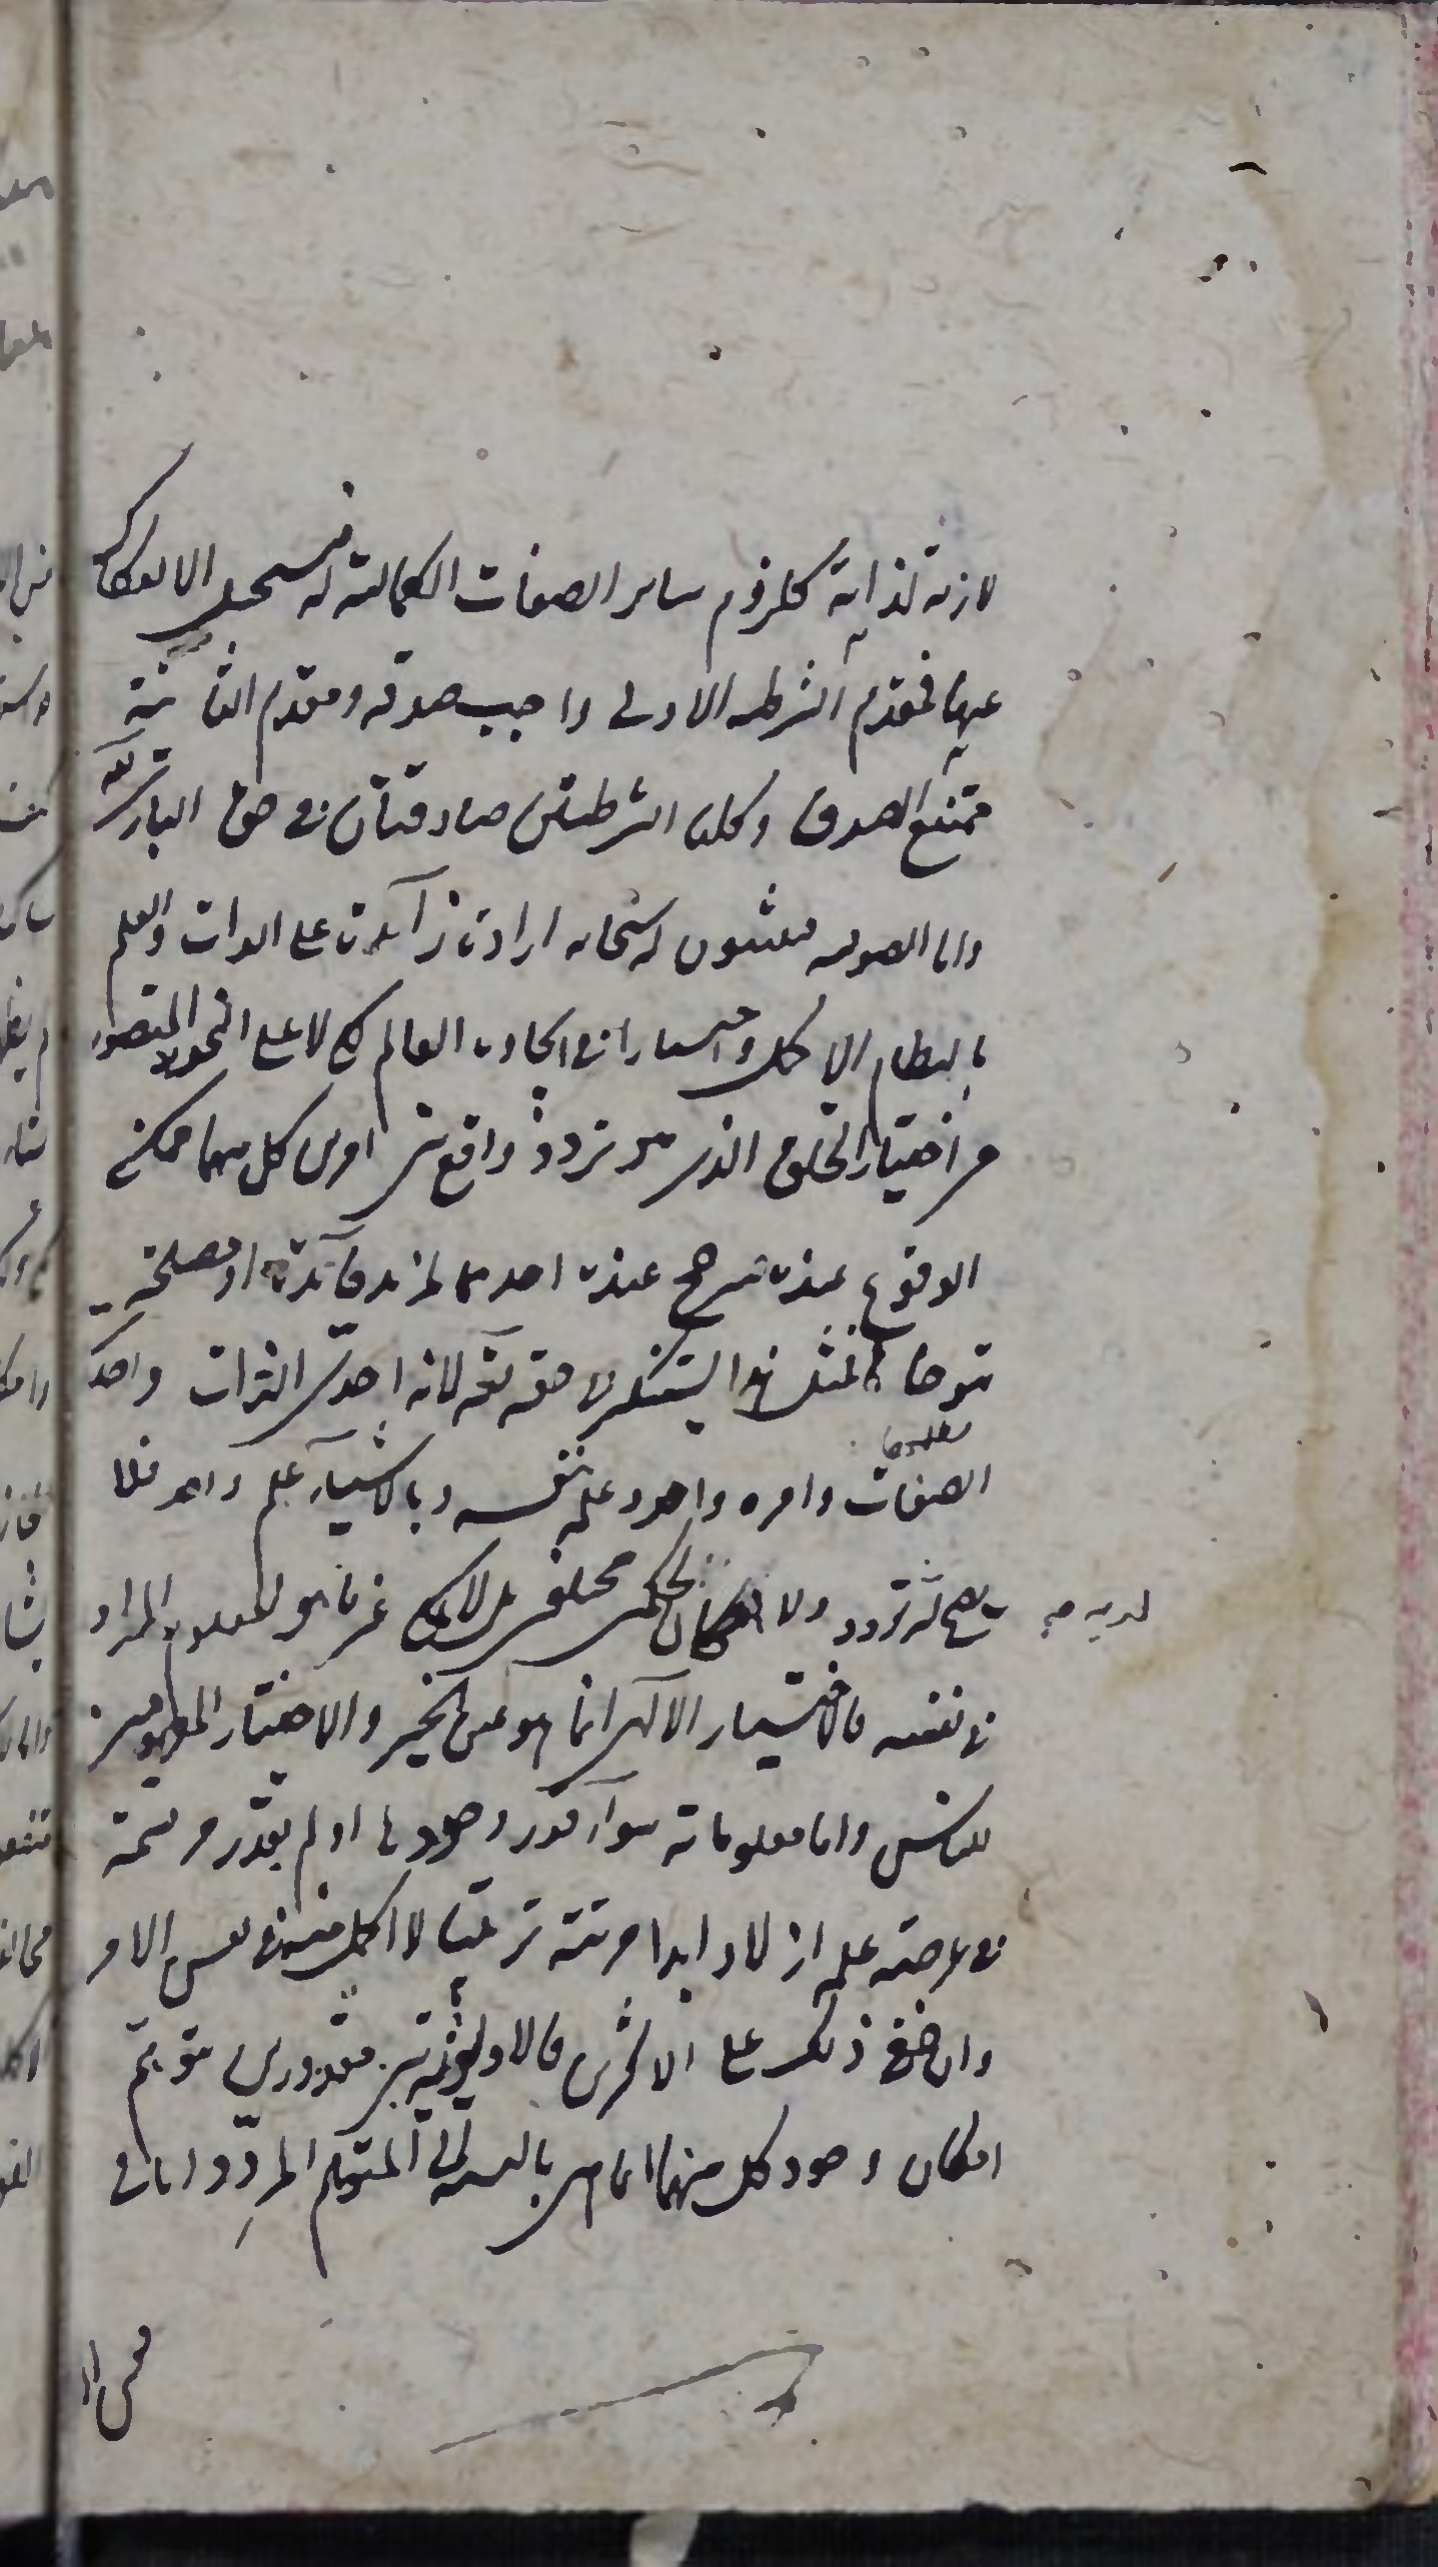 لازمة لذاته كلزوم ساير الصفات الكمالية له فيستحيل الانفكاك
عنها فمقدم الشرطية الاولى واجب صدقه ومقدم الثانية
ممتنع الصدق وكلتا الشرطيتين صادقتان في حق الباري تعالى
واما الصوفية فيثبتون له سبحانه ارادة زآئدة على الذات والعلم
بالنظام الاكمل واختيارا في ايجاده العالم لكن لا على النحو المتصور
من اختيار الخلق الذي هو تردد واقع بين امرين كل منهما ممكن
الوقوع عنده فيترجح عنده احدهما لمزيد فآئدة او مصلحة
يتوخاها فمثل هذا يستنكر في حقه تعه لانه احدي الذات واحدي
الصفات وامره واحد وعلمه بنفسه وبالاشيآء علم واحد فلا
يصح لديه تردد ولا امكان حكمين مختلفين بل لا يمكن غير ما هو المعلوم المراد
في نفسه فالاختيار الالهي انما هو بين الجبر والاختيار المفهومين
للناس واما معلوماته سوآء قدر وجودها او لم يقدر مرتسمة
في عرصة علمه ازلا وابدا مرتبة ترتيبا لا اكمل منه في نفس الامر
وان خفي ذلك على الاكثرين فالاولوية بين مقدورين يتوهم
امكان وجود كل منهما انما هي بالنسبة الى المتوهم المردد اما في